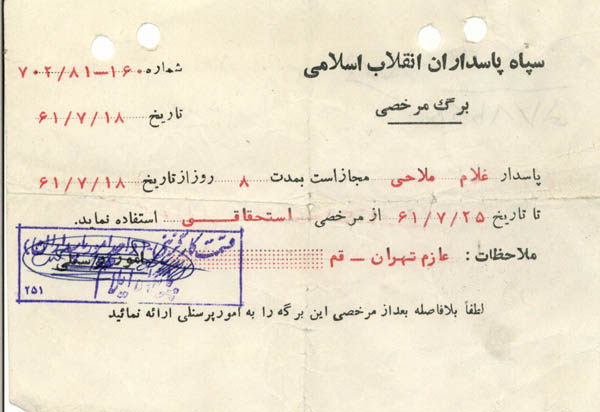 سپاه پاسداران انقلاب اسلامی
شماره ۷۰۲/۸۱-۱۶۰
برگ مرخصی
تاریخ ۶۱/۷/۱۸
پاسدار غلام ملاحی مجاز است بمدت ۸ روز از تاریخ ۶۱/۷/۱۸
تا تاریخ ۶۱/۷/۲۵ از مرخصی استحقاقی استفاده نماید.
ملاحظات: عازم تهران - قم
امور پرسنلی
۲۵۱
لطفاً بلافاصله بعد از مرخصی این برگه را به امور پرسنلی ارائه نمائید